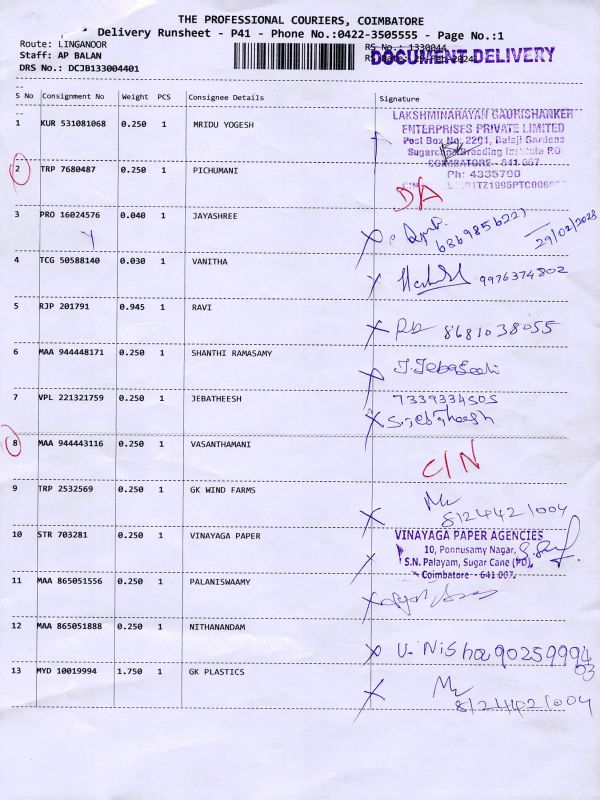 THE PROFESSIONAL COURIERS, COIMBATORE
Delivery Runsheet - P41 - Phone No.:0422-3505555 - Page No.:1
Route: LINGANOOR
RS No.: 1330044
Staff: AP BALAN
DOCUMENT DELIVERY
DRS No.: DCJB133004401
S No Consignment No Weight PCS Consignee Details Signature
1 KUR 531081068 0.250 1 MRIDU YOGESH
LAKSHMINARAYAN GAURISHANKER
ENTERPRISES PRIVATE LIMITED
Post Box No. 2201, Balaji Gardens
Sugarcane Breeding Institute PO
COIMBATORE - 641 007.
Ph: 4335790
2 TRP 7680487 0.250 1 PICHUMANI
D/A
3 PRO 16024576 0.040 1 JAYASHREE
6369856221
29/02/2028
4 TCG 50588140 0.030 1 VANITHA
9976374802
5 RJP 201791 0.945 1 RAVI
8681038055
6 MAA 944448171 0.250 1 SHANTHI RAMASAMY
7 VPL 221321759 0.250 1 JEBATHEESH
7339334505
S.Jebatheesh
8 MAA 944443116 0.250 1 VASANTHAMANI
C/N
9 TRP 2532569 0.250 1 GK WIND FARMS
8124421004
10 STR 703281 0.250 1 VINAYAGA PAPER
VINAYAGA PAPER AGENCIES
10, Ponnusamy Nagar,
S.N. Palayam, Sugar Cane (PO),
Coimbatore - 641 007.
11 MAA 865051556 0.250 1 PALANISWAAMY
12 MAA 865051888 0.250 1 NITHANANDAM
U. Nisha 9025999403
13 MYD 10019994 1.750 1 GK PLASTICS
8124421004